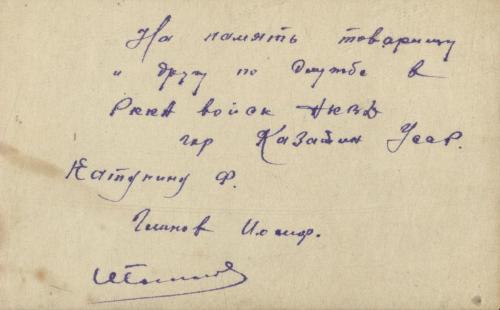 На память товарищу
и другу по службе в
РККА войск НКВД
гор Казатин УССР.
Катунину Ф.
Иосиф.